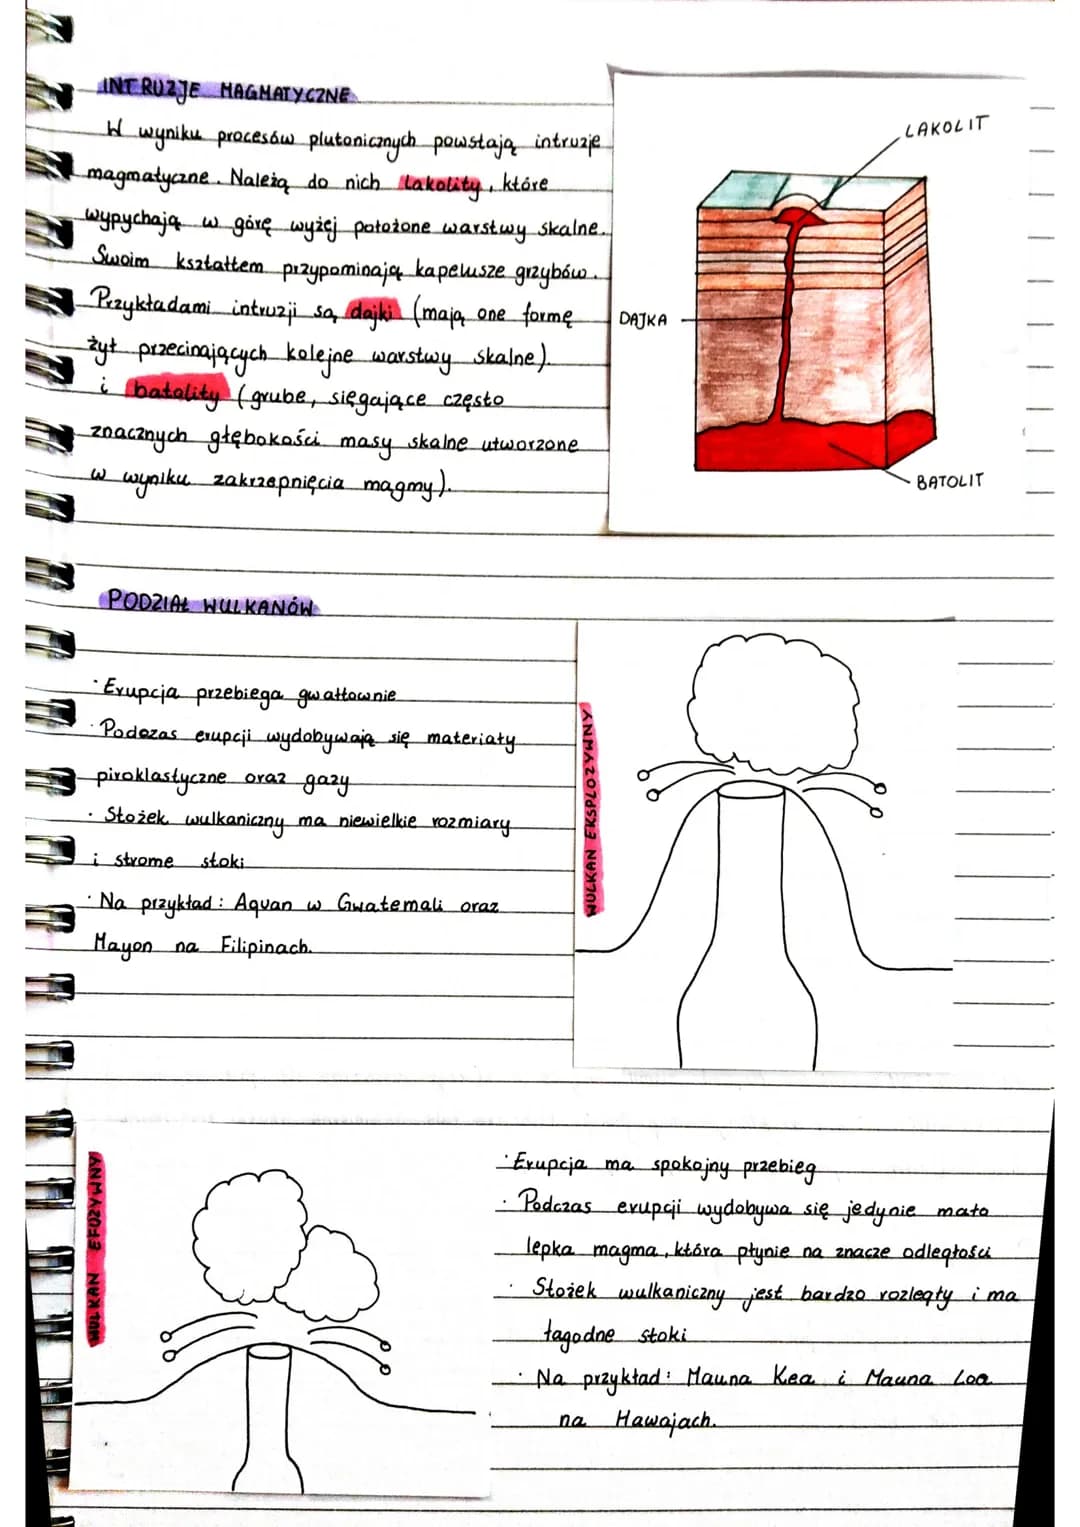 INTRUZJE MAGMATYCZNE
W wyniku procesów plutonicznych powstają intruzje
magmatyczne. Należą do nich lakolity, które
wypychają w górę wyżej położone warstwy skalne.
Swoim kształtem przypominają kapelusze grzybów.
Przykładami intruzji są dajki (mają one formę
żył przecinających kolejne warstwy skalne).
i batolity (grube, sięgające często
znacznych głębokości masy skalne utworzone
w wyniku zakrzepnięcia magmy).
LAKOLIT
DAJKA
BATOLIT
PODZIAŁ WULKANÓW
· Erupcja przebiega gwałtownie
· Podczas erupcji wydobywają się materiały
piroklastyczne oraz gazy
· Stożek wulkaniczny ma niewielkie rozmiary
i strome stoki
· Na przykład: Aquan w Gwatemali oraz
Mayon na Filipinach.
WULKAN EKSPLOZYWNY
WULKAN EFUZYWNY
· Erupcja ma spokojny przebieg
· Podczas erupcji wydobywa się jedynie mało
lepka magma, która płynie na znacze odległości
· Stożek wulkaniczny jest bardzo rozległy i ma
łagodne stoki
· Na przykład: Mauna Kea i Mauna Loa
na Hawajach.